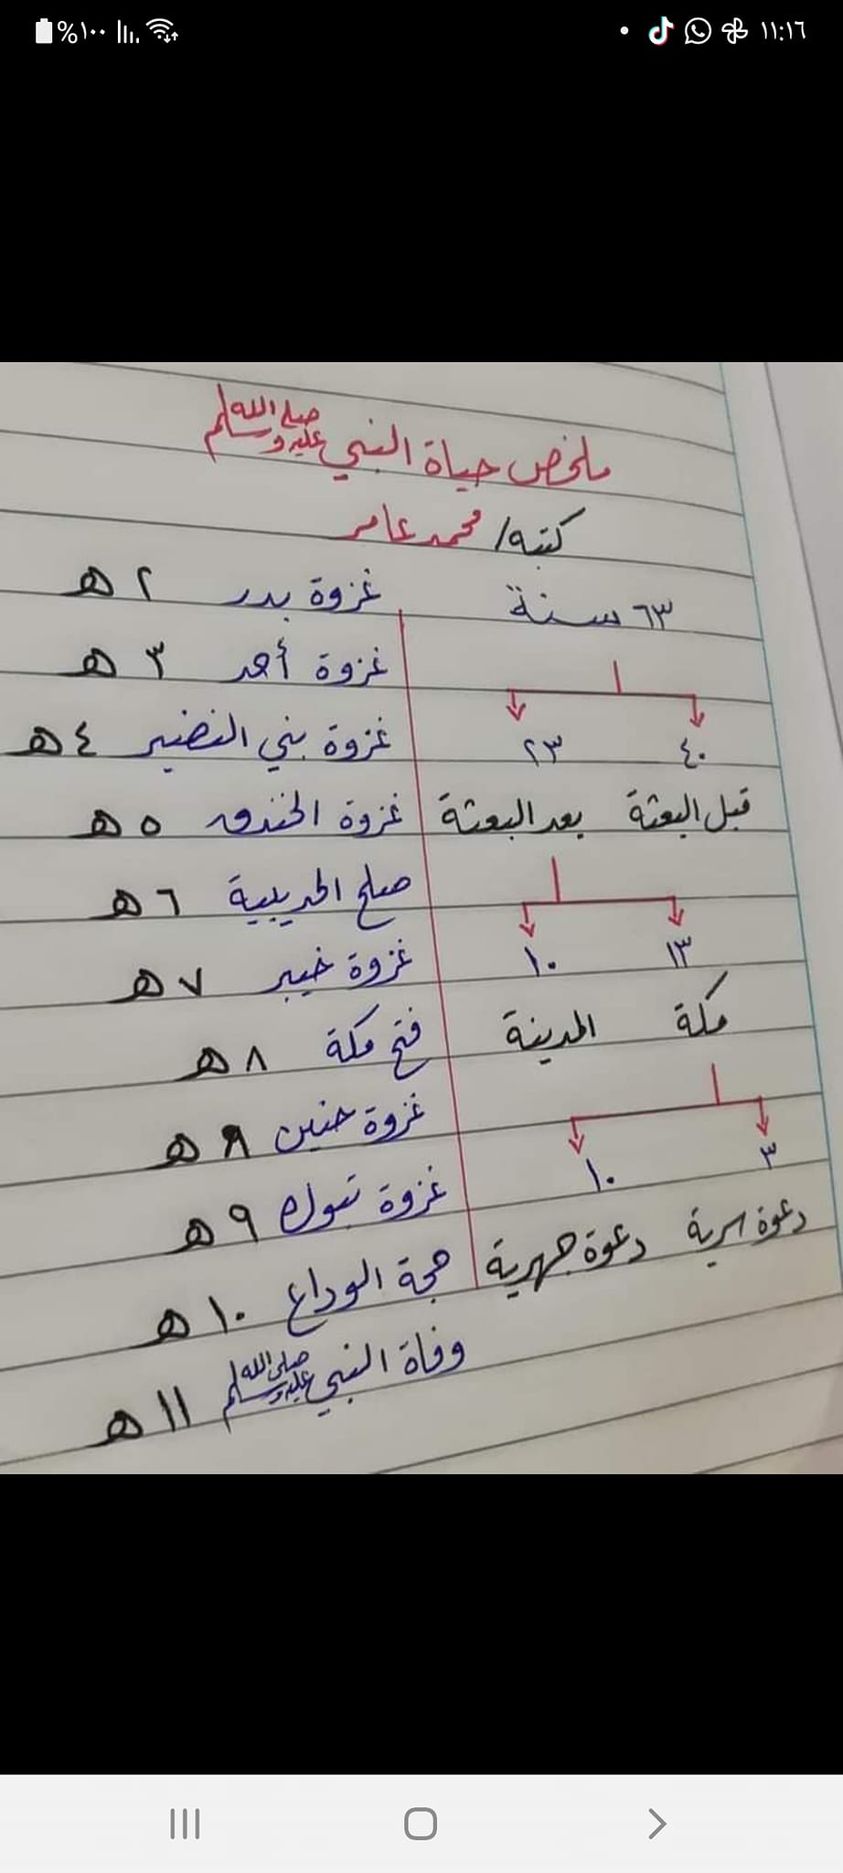 ١١:١٦
%١٠٠
ملخص حياة النبي صلى الله عليه وسلم
كتبه/ محمد عامر
٦٣ سنة
٤٠ ٢٣
قبل البعثة بعد البعثة
١٣ ١٠
مكة المدينة
٣ ١٠
دعوة سرية دعوة جهرية
غزوة بدر ٢ هـ
غزوة أحد ٣ هـ
غزوة بني النضير ٤ هـ
غزوة الخندق ٥ هـ
صلح الحديبية ٦ هـ
غزوة خيبر ٧ هـ
فتح مكة ٨ هـ
غزوة حنين ٨ هـ
غزوة تبوك ٩ هـ
حجة الوداع ١٠ هـ
وفاة النبي صلى الله عليه وسلم ١١ هـ